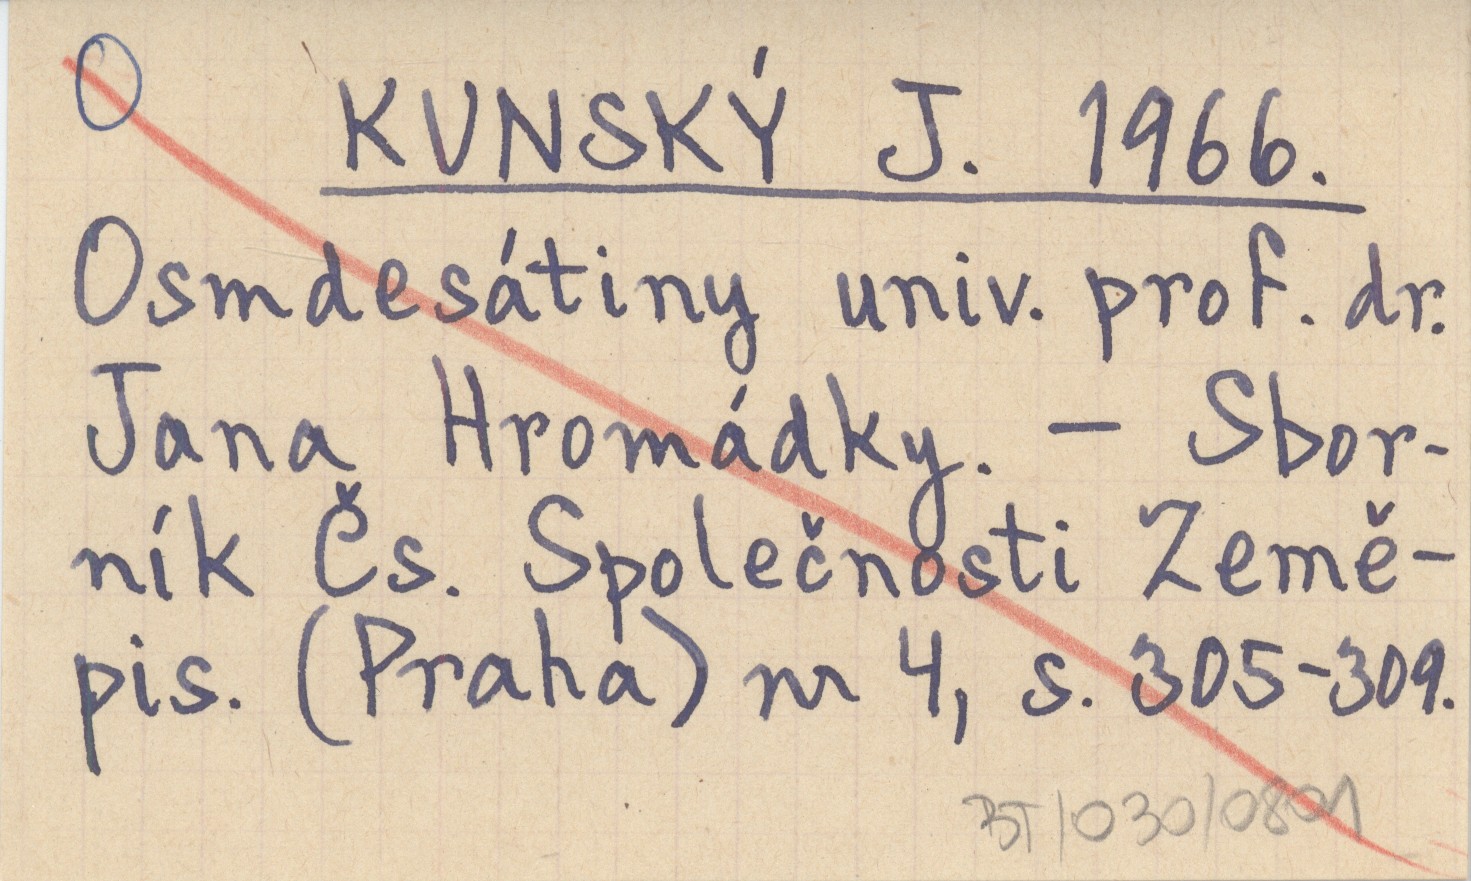 O
KUNSKÝ J. 1966.
Osmdesátiny univ. prof. dr.
Jana Hromádky. – Sbor-
ník Čs. Společnosti Země-
pis. (Praha) nr 4, s. 305-309.
BT/030/0801